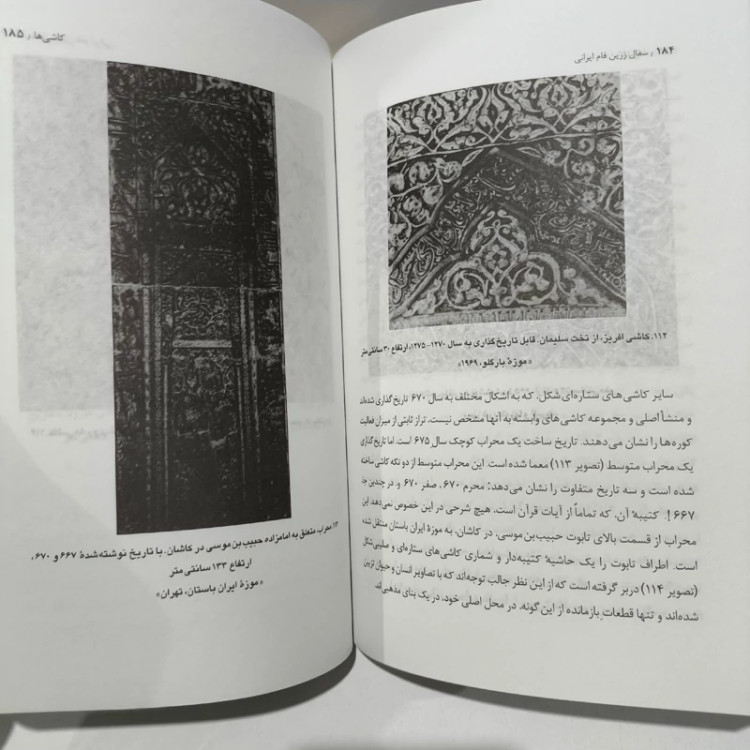 ۱۸۴ / سفال زرین فام ایرانی
۱۱۲. کاشی افریز، از تخت سلیمان. قابل تاریخ‌گذاری به سال ۱۲۷۰-۱۲۷۵، ارتفاع ۳۰ سانتی‌متر
«موزهٔ بارگلو، ۱۹۶۹»
سایر کاشی‌های ستاره‌ای شکل، که به اشکال مختلف به سال ۶۷۰ تاریخ گذاری شده‌اند
و منشأ اصلی و مجموعه کاشی‌های وابسته به آنها مشخص نیست، تراز ثابتی از میزان فعالیت
کوره‌ها را نشان می‌دهند. تاریخ ساخت یک محراب کوچک سال ۶۷۵ است. اما تاریخ گذاری
یک محراب متوسط (تصویر ۱۱۳) معما شده است. این محراب متوسط از دو تکه کاشی ساخته
شده است و سه تاریخ متفاوت را نشان می‌دهد: محرم ۶۷۰، صفر ۶۷۰ و، در چندین جا
۶۶۷! کتیبهٔ آن، که تماماً از آیات قرآن است. هیچ شرحی در این خصوص نمی‌دهد. این
محراب از قسمت بالای تابوت حبیب‌بن‌موسی، در کاشان، به موزهٔ ایران باستان منتقل شده
است. اطراف تابوت را یک حاشیهٔ کتیبه‌دار و شماری کاشی‌های ستاره‌ای و صلیبی‌شکل
(تصویر ۱۱۴) دربر گرفته است که از این نظر جالب توجه‌اند که با تصاویر انسان و حیوان تزیین
شده‌اند و تنها قطعات بازمانده از این گونه، در محل اصلی خود، در یک بنای مذهبی‌اند.
کاشی‌ها / ۱۸۵
محراب، متعلق به امامزاده حبیب‌بن‌موسی در کاشان. با تاریخ نوشته‌شدهٔ ۶۶۷ و ۶۷۰،
ارتفاع ۱۳۳ سانتی‌متر
«موزهٔ ایران باستان، تهران»